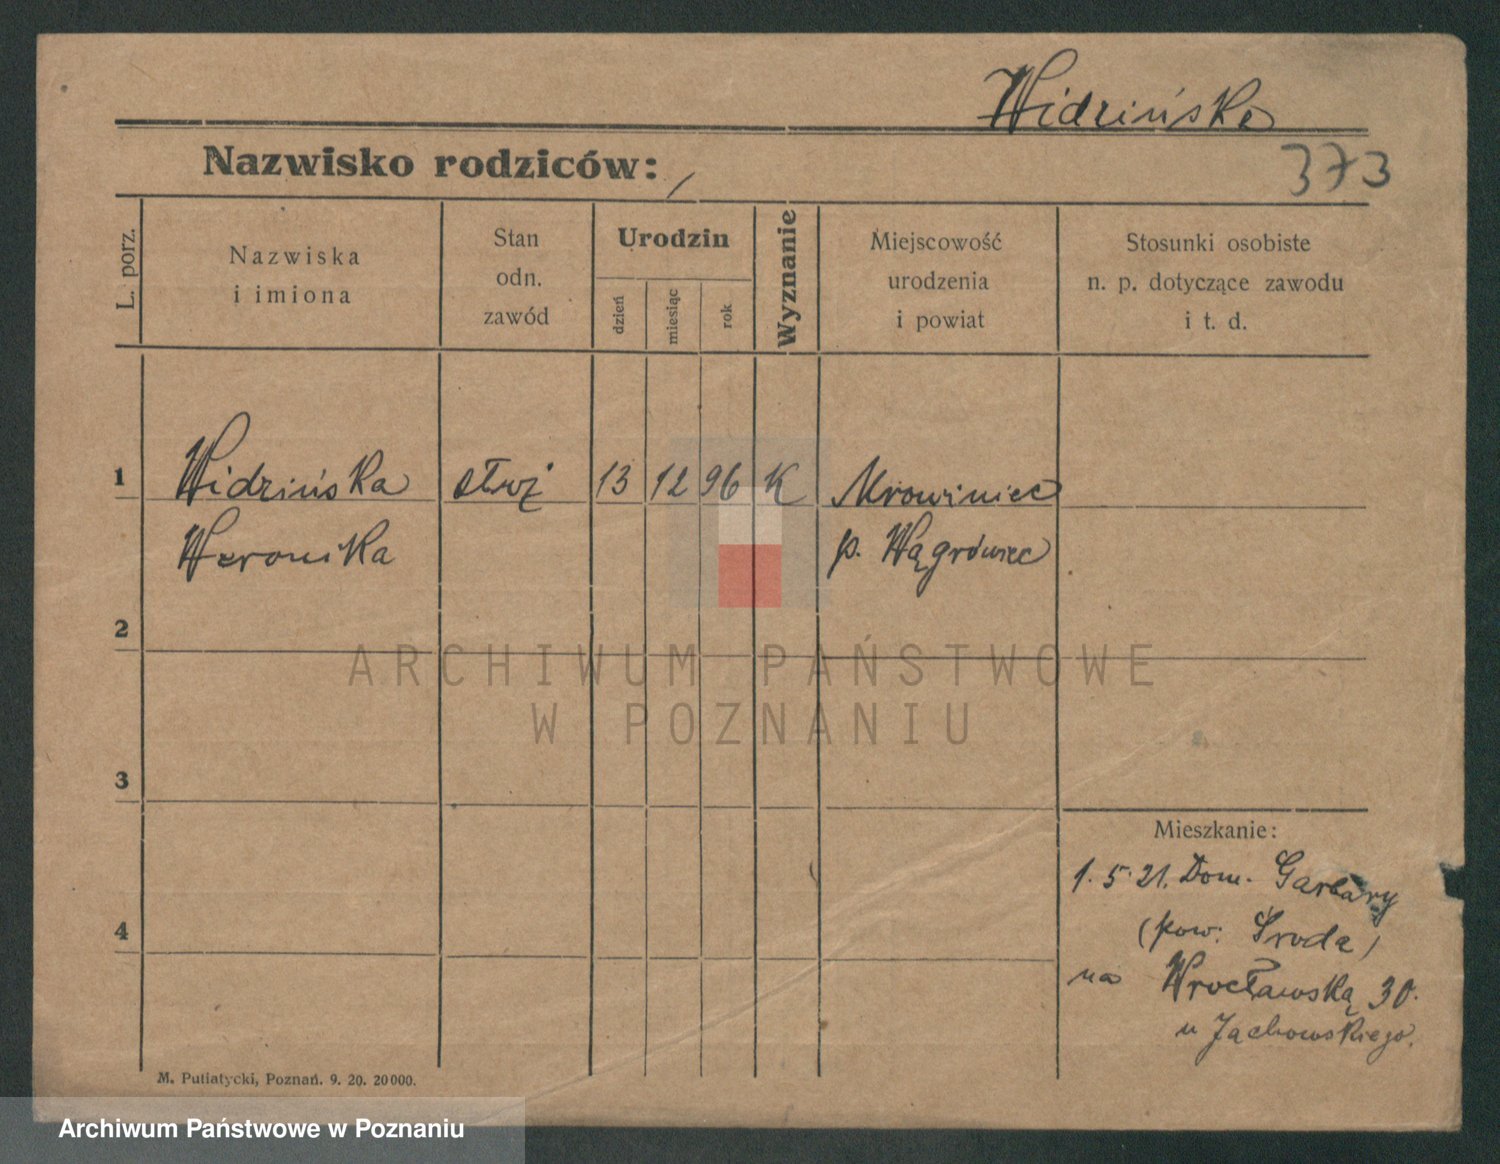 Widzińska
Nazwisko rodziców: /
373
L. porz.
Nazwiska
i imiona
Stan
odn.
zawód
Urodzin
dzień
miesiąc
rok
Wyznanie
Miejscowość
urodzenia
i powiat
Stosunki osobiste
n. p. dotyczące zawodu
i t. d.
1 Widzińska służ 13 12 96 K Mrowiniec
Weronika p. Wągrówiec
2
ARCHIWUM PAŃSTWOWE
W POZNANIU
3
Mieszkanie:
1. 5. 21. Dom. Garbary
(pow. Środa)
4
na Wrocławską 30.
u Jachowskiego.
M. Putiatycki, Poznań. 9. 20. 20000.
Archiwum Państwowe w Poznaniu